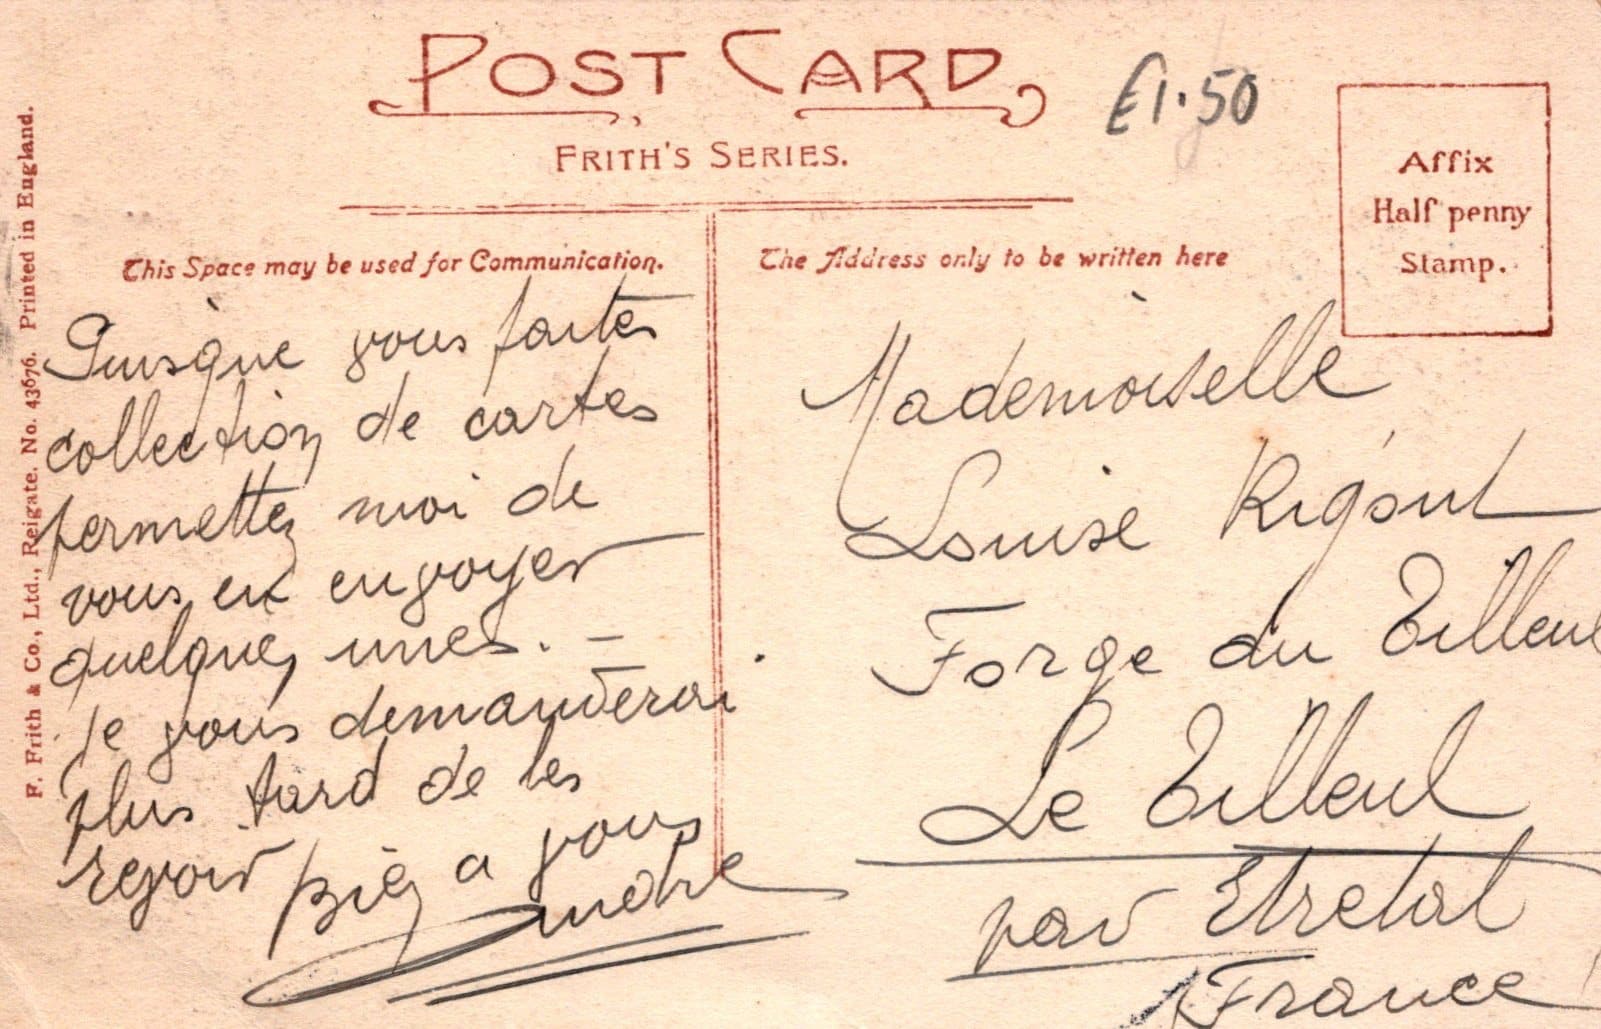 POST CARD
FRITH'S SERIES.
£1.50
Affix
Half penny
Stamp.
F. Frith & Co., Ltd., Reigate. No. 43676. Printed in England.
This Space may be used for Communication.
Puisque vous faites
collection de cartes
permettez moi de
vous en envoyer
quelques unes. –
je vous demanderai
plus tard de les
revoir
Bien a vous
André
The Address only to be written here
Mademoiselle
Louise
Forge du Tilleul
Le Tilleul
par Etretat
France